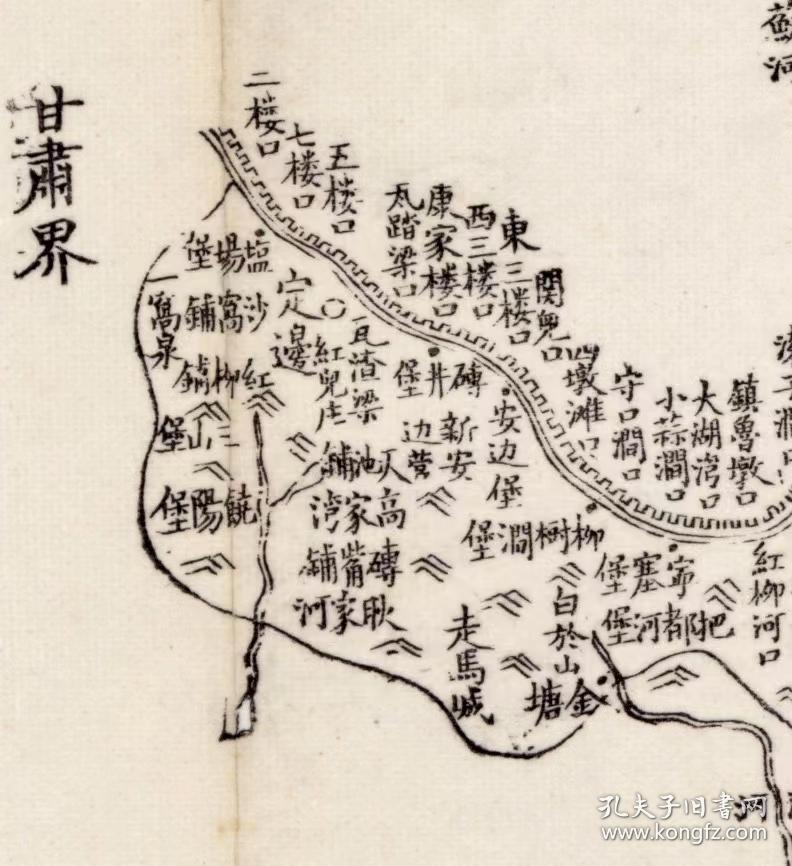 甘肅界
二楼口
七楼口
五楼口
瓦踏梁口
康家楼口
西三楼口
東三楼口
関兒口
四墩滩口
守口澗口
小蒜澗口
大湖湾口
鎮魯墩口
塩場堡
沙窩鋪
一窩泉
定邊
瓦渣梁
紅兒庄
紅柳鋪
三山堡
饒陽堡
磚井堡
新安边营
安边堡
柳樹澗堡
寧塞堡
把都河堡
紅柳河口
高家湾
磚嘴鋪
耿家河
白於山
走馬城
金塘
蘇河
河
孔夫子旧書网
www.kongfz.com